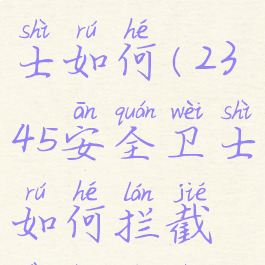 shì rú hé
士如何(23
ān quán wèi shì
45安全卫士
rú hé lán jié
如何拦截